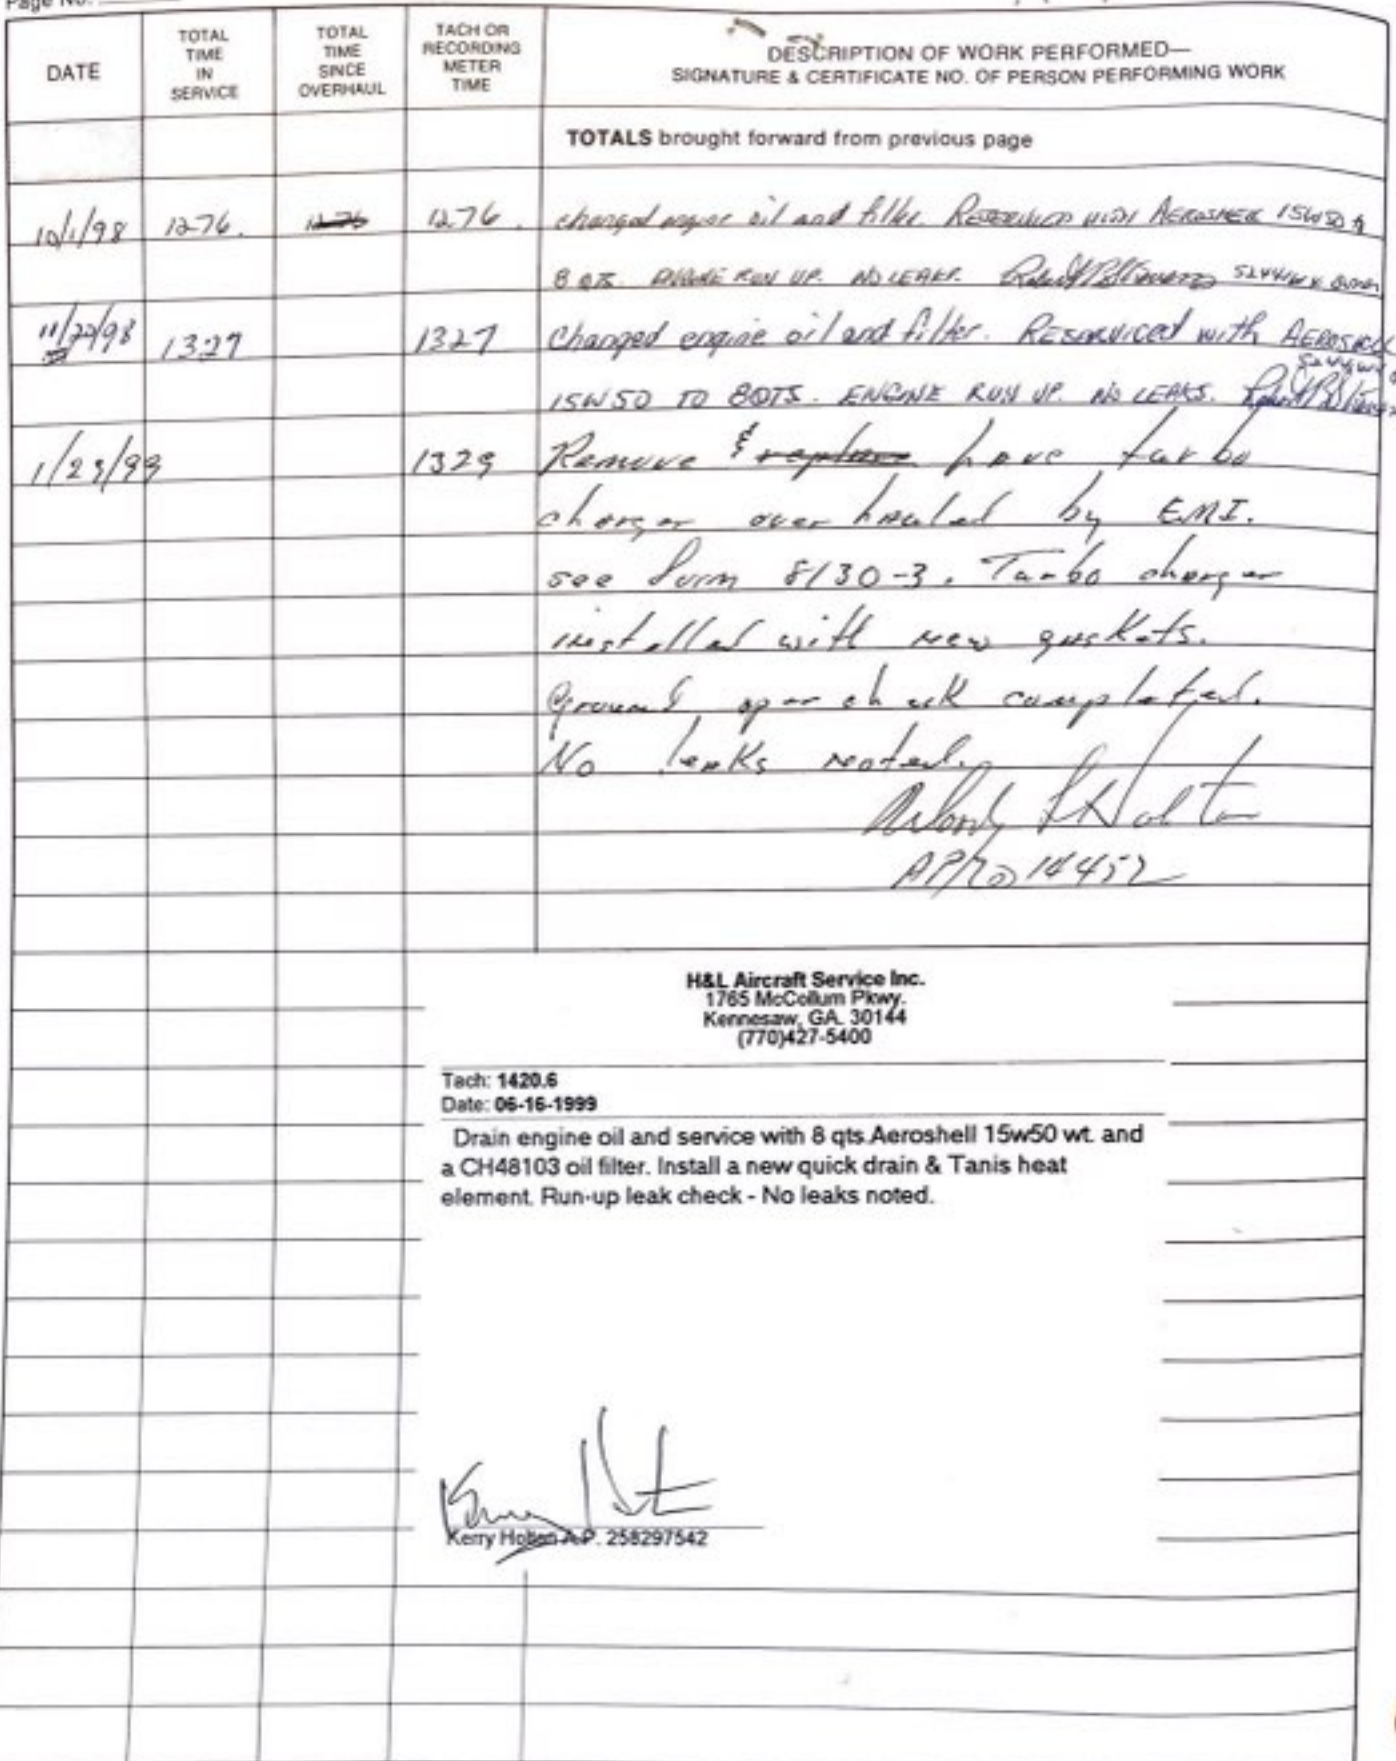 Page No.
DATE
TOTAL
TIME
IN
SERVICE
TOTAL
TIME
SINCE
OVERHAUL
TACH OR
RECORDING
METER
TIME
DESCRIPTION OF WORK PERFORMED—
SIGNATURE & CERTIFICATE NO. OF PERSON PERFORMING WORK
TOTALS brought forward from previous page
10/1/98 1276. 1276 1276. changed engine oil and filter. RESERVICED WITH AEROSHELL 15W50
8 QTS. ENGINE RUN UP. NO LEAKS.
11/22/98 1327 1327 Changed engine oil and filter. RESERVICED with AEROSHELL
15W50 TO 8QTS. ENGINE RUN UP. NO LEAKS.
1/29/99 1329 Remove & replace have turbo
charger over hauled by EMI.
see form 8130-3. Turbo charger
installed with new gaskets.
Ground oper check completed.
No leaks noted.
H&L Aircraft Service Inc.
1765 McCollum Pkwy.
Kennesaw, GA. 30144
(770)427-5400
Tach: 1420.6
Date: 06-16-1999
Drain engine oil and service with 8 qts.Aeroshell 15w50 wt. and
a CH48103 oil filter. Install a new quick drain & Tanis heat
element. Run-up leak check - No leaks noted.
Kerry Holten A.P. 258297542